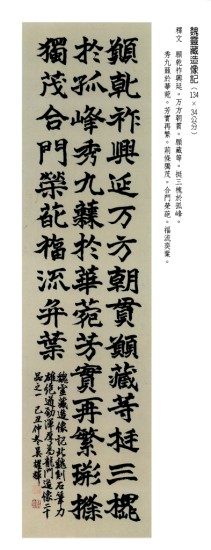 魏靈藏造像記(134×34公分)
釋文 願乾祚興延。万方朝貫。願藏等。挺三槐於孤峰。
秀九蕀於華菀。芳實再繁。荊條獨茂。合門榮葩。福流奕葉。
願乾祚興延万方朝貫願藏等挺三槐
於孤峰秀九蕀於華菀芳實再繁荊條
獨茂合門榮葩福流弈葉
魏靈藏造像記北魏刻石筆力
雄絕遒勁渾厚為龍門造像二十
品之一 己丑仲冬吳